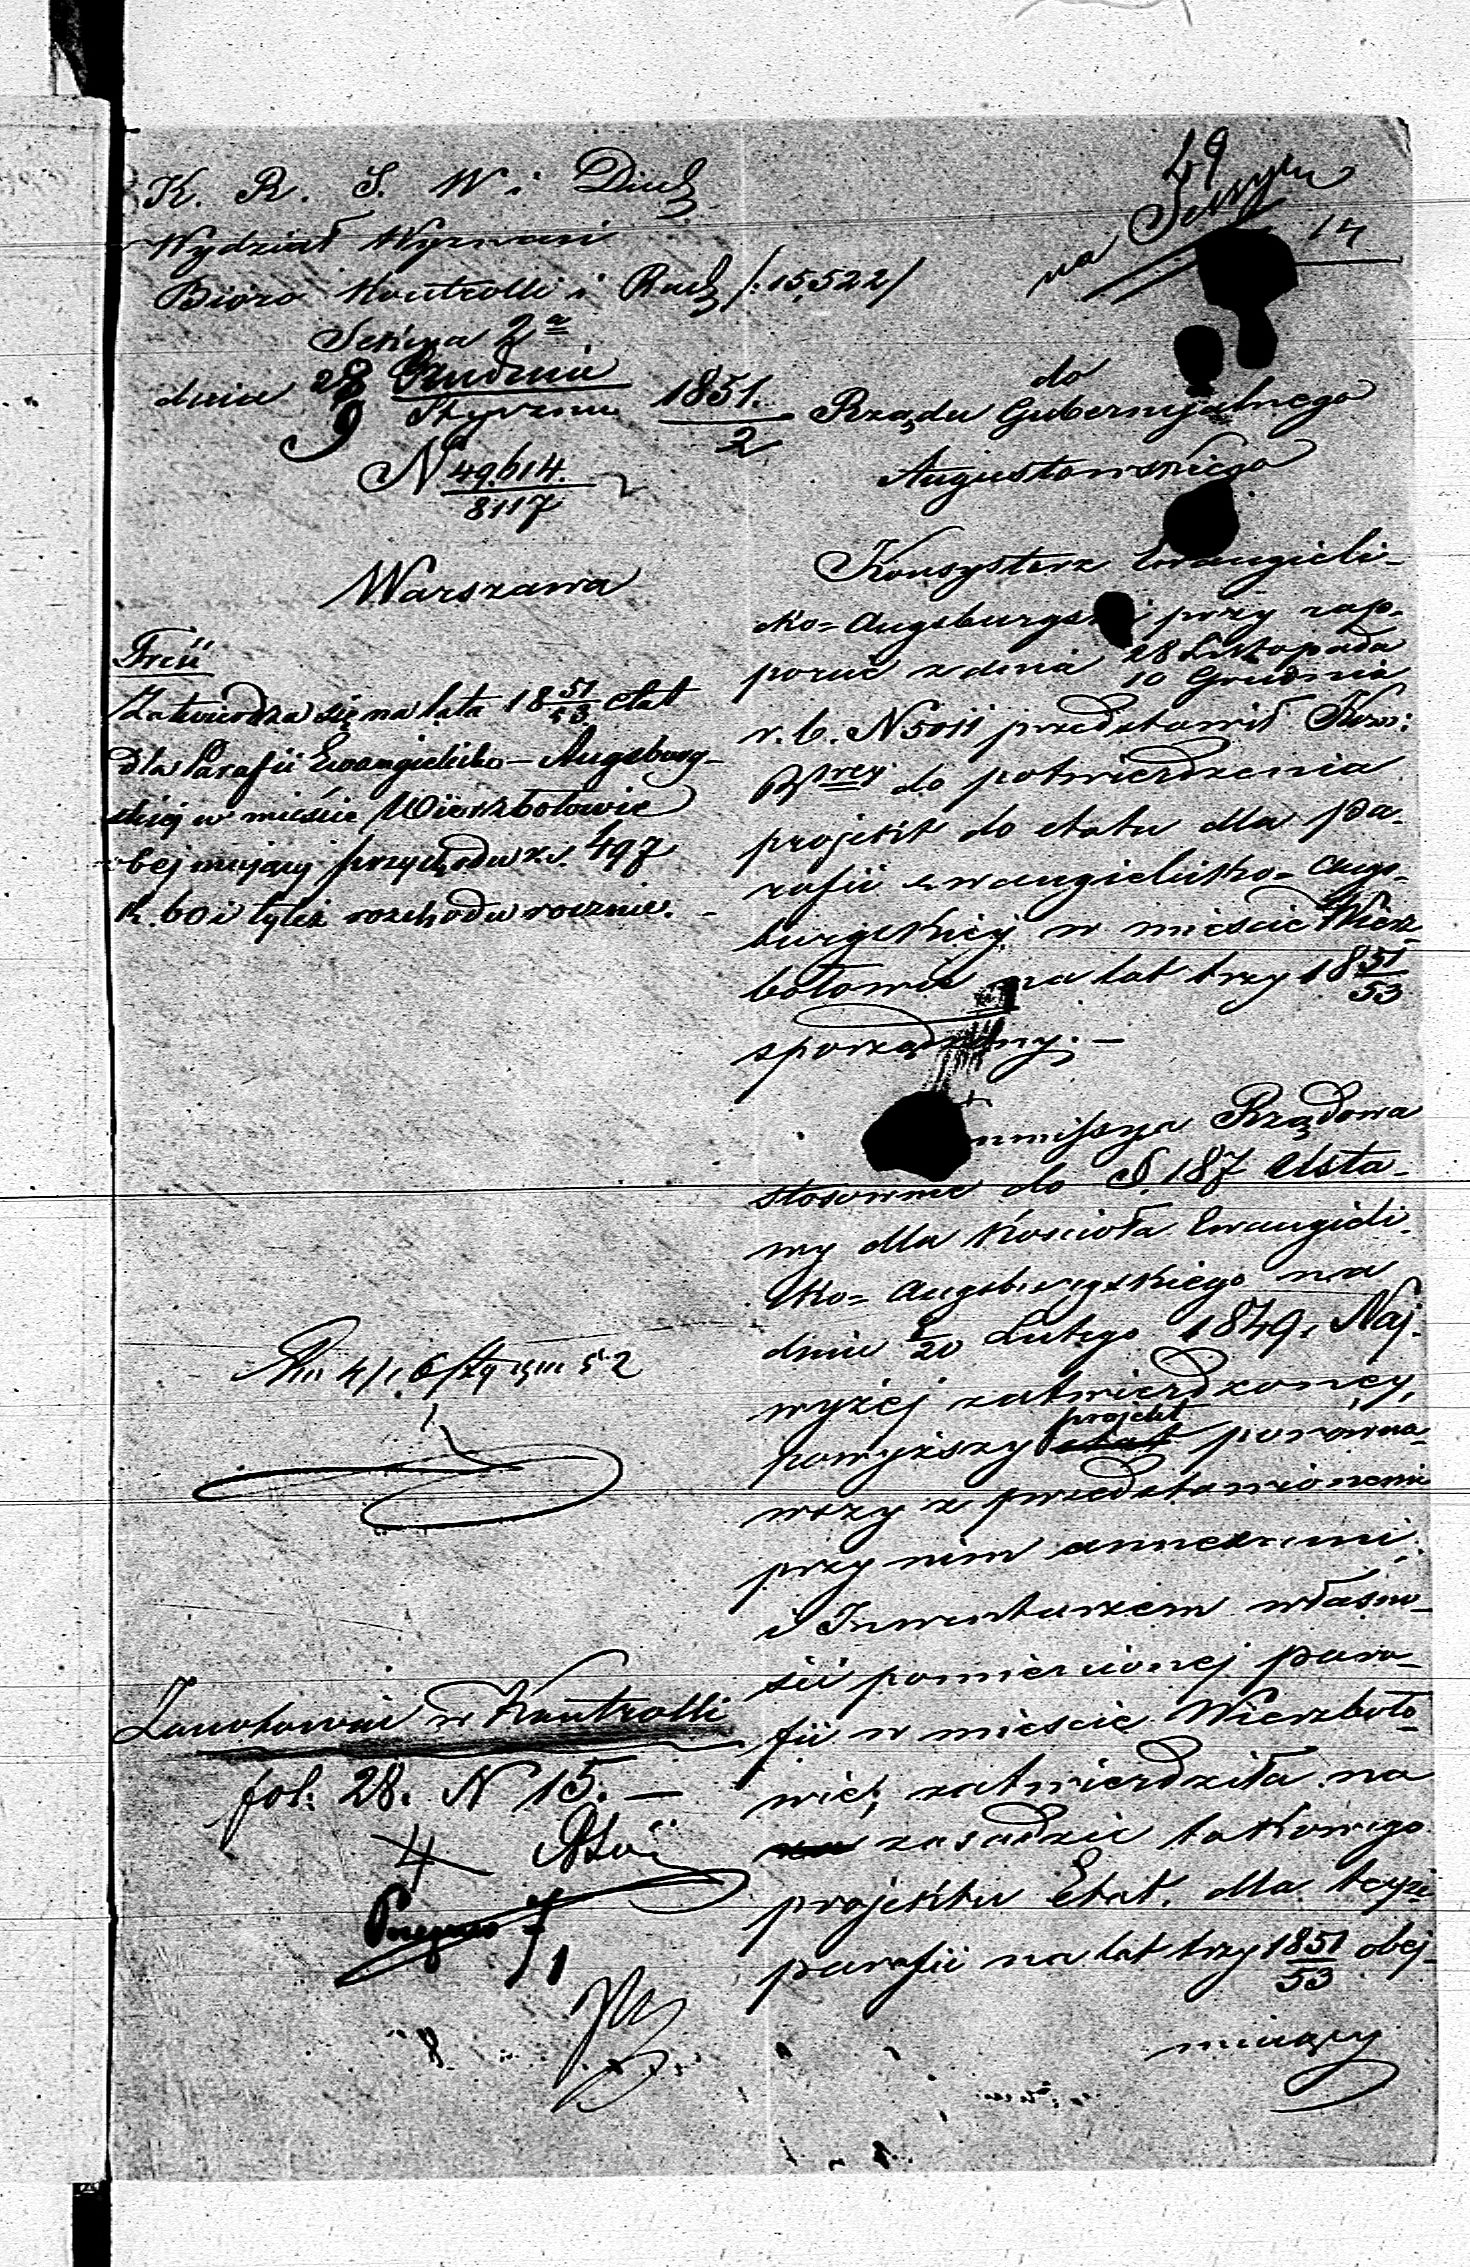 K. R. S. W i Duch
Wydział Wyznań
Bióro Kontrolli i Rach /:15,522/
Sekcya 2a
dnia 28 Grudnia 1851.
9 Stycznia 2
N 49.614.
8117
Warszawa
Treść
Zatwierdza się na lata 18 51/53 etat
dla Parafii Ewangielicko-Augsburg-
skiej w mieście Wierzbołowie
obejmujący przychodu rs. 497
k. 60 i tyleż rozchodu rocznie. -
52
Zanotowane w Kontrolli
fol: 28. N 15. —
49
na
14
do
Rządu Gubernijalnego
Augustowskiego
Konsystorz Ewangieli-
cko=Augsburgski przy rap-
porcie z dnia 28 Listopada
10 Grudnia
r. b. N 5011 przedstawił Kom:
Rzrey do potwierdzenia
projekt do etatu dla pa-
rafii ewangielicko=Augs-
burgskiej w mieście Wierz-
bołowie na lat trzy 18 51/53
sporządzony. —
Kommissya Rządowa
stosownie do §. 187 Usta-
wy dla Kościoła Ewangieli-
cko=Augsburgskiego na
dniu 8/20 Lutego 1849 r. Naj-
wyżej zatwierdzoney,
projekt
powyższy etat porówna-
wszy z przedstawionemi
przy nim annexami
i Inwentarzem własno-
ści pomienionej para-
fii w mieście Wierzboło-
wie; zatwierdziła na
zasadzie takowego
projektu Etat. dla teyże
parafii na lat trzy 1851/53 obej-
mujący